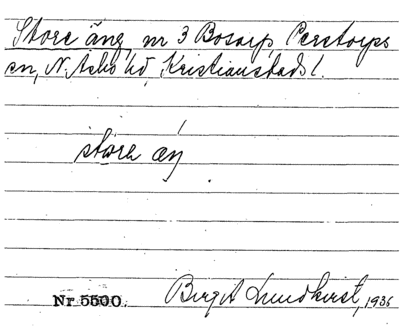 Store äng, nr 3 Bosarp, Perstorps
sn, N. Åsbo hd, Kristianstads l.
störa äŋ
Nr 5500.
Birgit Lundkvist, 1936